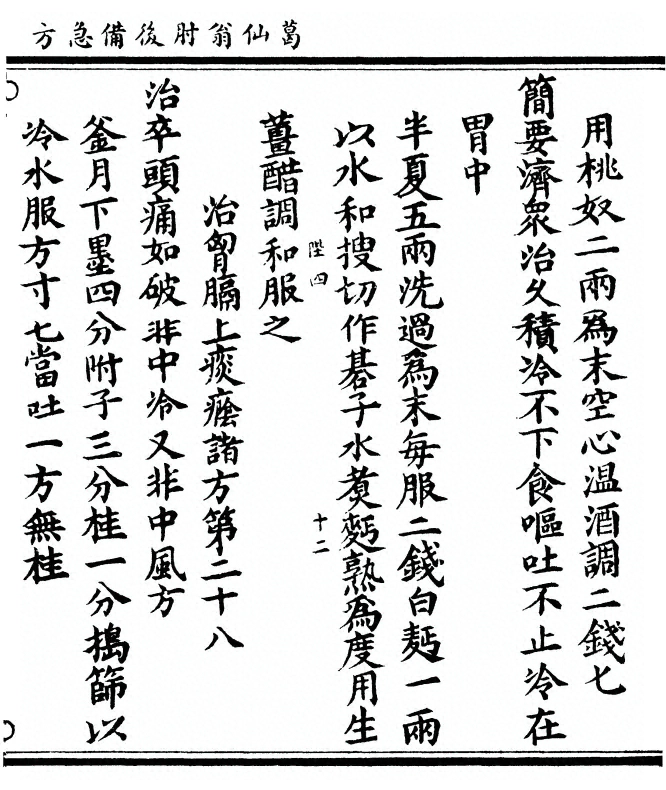 葛仙翁肘後備急方
用桃奴二兩爲末空心温酒調二錢匕
簡要濟衆治久積冷不下食嘔吐不止冷在
胃中
半夏五兩洗過爲末每服二錢白麪一兩
以水和搜切作碁子水煑麪熟爲度用生
陛四
十二
薑醋調和服之
治胷膈上痰癊諸方第二十八
治卒頭痛如破非中冷又非中風方
釜月下墨四分附子三分桂一分搗篩以
冷水服方寸匕當吐一方無桂